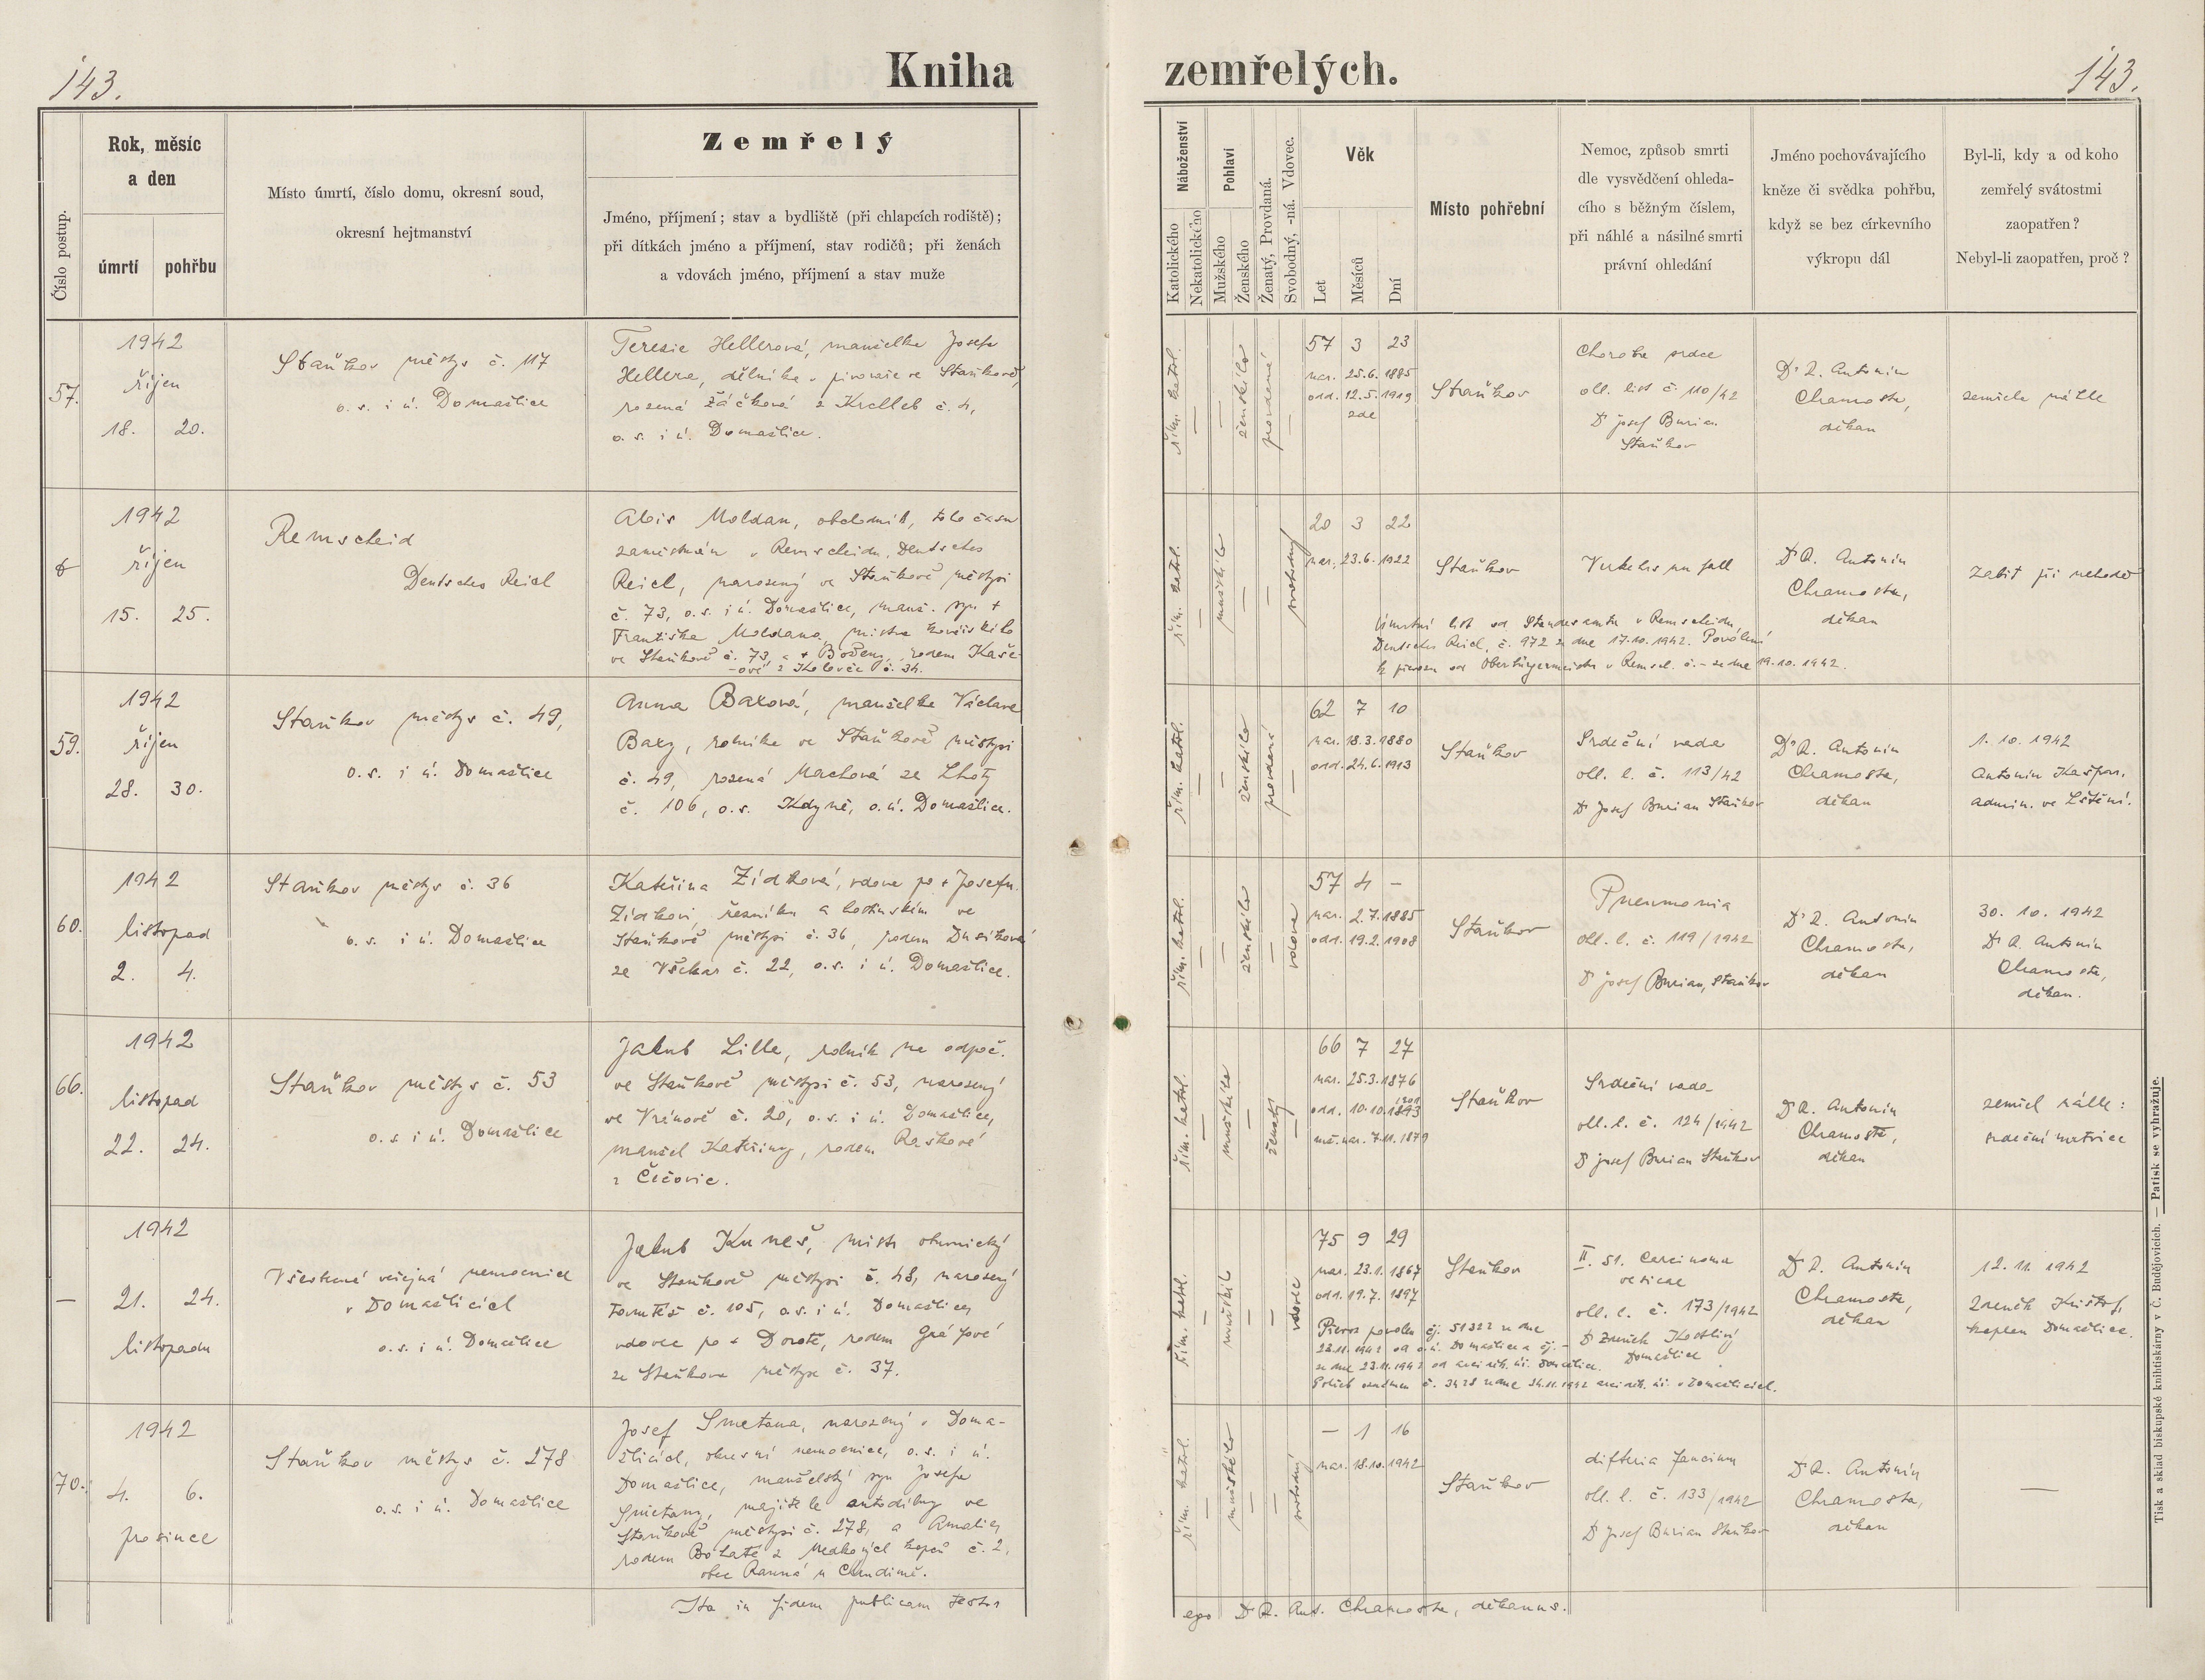 143.
Kniha
zemřelých.
143.
Číslo postup.
Rok, měsíc
a den
úmrtí
pohřbu
Místo úmrtí, číslo domu, okresní soud,
okresní hejtmanství
Zemřelý
Jméno, příjmení; stav a bydliště (při chlapcích rodiště);
při dítkách jméno a příjmení, stav rodičů; při ženách
a vdovách jméno, příjmení a stav muže
Náboženství
Katolického
Nekatolického
Pohlaví
Mužského
Ženského
Ženatý, Provdaná.
Svobodný, -ná. Vdovec.
Věk
Let
Měsíců
Dní
Místo pohřební
Nemoc, způsob smrti
dle vysvědčení ohleda-
cího s běžným číslem,
při náhlé a násilné smrti
právní ohledání
Jméno pochovávajícího
kněze či svědka pohřbu,
když se bez církevního
výkropu dál
Byl-li, kdy a od koho
zemřelý svátostmi
zaopatřen?
Nebyl-li zaopatřen, proč?
57.
1942
říjen
18. 20.
Staňkov městys č. 117
o. s. i ú. Domažlice
Terezie Hellerová, manželka Josefa
Hellera, dělníka v pivovaře ve Staňkově,
rozená Žáčková z Krchleb č. 4,
o. s. i ú. Domažlice.
řím. katol.
—
—
ženského
provdaná
—
57 3 23
nar. 25.6.1885
odd. 12.5.1919
zde
Staňkov
Choroba srdce
ohl. list č. 110/42
Dr Josef Burian
Staňkov
Dr R. Antonín
Chamosta,
děkan
zemřela náhle
1942
říjen
15. 25.
Remscheid
Deutsches Reich
Alois Moldan, obchodník, toho času
zaměstnán v Remscheidu, Deutsches
Reich, narozený ve Staňkově městysi
č. 73, o. s. i ú. Domažlice, manž. syn +
Františka Moldana, mistra
ve Staňkově č. 73 a + Boženy, rodem Kaše-
-ové z Koloveče č. 34.
řím. katol.
—
mužského
—
—
svobodný
20 3 22
nar. 23.6.1922
Staňkov
Verkehrsunfall
Dr R. Antonín
Chamosta,
děkan
zabit při nehodě
Úmrtní list od Standesamtu v Remscheidu,
Deutsches Reich, č. 972 ze dne 17.10.1942. Povolení
k převozu od Oberbürgermeistra v Remsch. č. – ze dne 19.10.1942.
59.
1942
říjen
28. 30.
Staňkov městys č. 49,
o. s. i ú. Domažlice
Anna Baxová, manželka Václava
Baxy, rolníka ve Staňkově městysi
č. 49, rozená Machová ze Lhoty
č. 106, o. s. Kdyně, o. ú. Domažlice.
řím. katol.
—
—
ženského
provdaná
—
62 7 10
nar. 18.3.1880
odd. 24.6.1913
Staňkov
Srdeční vada
ohl. l. č. 113/42
Dr Josef Burian Staňkov
Dr R. Antonín
Chamosta,
děkan
1. 10. 1942
Antonín Kašpar,
admin. ve Lštění.
60.
1942
listopad
2. 4.
Staňkov městys č. 36
o. s. i ú. Domažlice
Kateřina Zídková, vdova po + Josefu
Zídkovi, řezníku a hostinském ve
Staňkově městysi č. 36, rodem Dusíková
ze Všekar č. 22, o. s. i ú. Domažlice.
řím. katol.
—
—
ženského
—
vdova
57 4 –
nar. 2.7.1885
odd. 19.2.1908
Staňkov
Pneumonia
ohl. l. č. 119/1942
Dr Josef Burian, Staňkov
Dr R. Antonín
Chamosta,
děkan
30. 10. 1942
Dr R. Antonín
Chamosta,
děkan.
66.
1942
listopad
22. 24.
Staňkov městys č. 53
o. s. i ú. Domažlice
Jakub Lille, rolník na odpoč.
ve Staňkově městysi č. 53, narozený
ve Vránově č. 20, o. s. i ú. Domažlice,
manžel Kateřiny, rodem Raškové
z Čečovic.
řím. katol.
—
mužského
—
ženatý
—
66 7 27
nar. 25.3.1876
odd. 10.10.1893
1901
nar. 7.11.1879
Staňkov
Srdeční vada
ohl. l. č. 124/1942
Dr Josef Burian Staňkov
Dr R. Antonín
Chamosta,
děkan
zemřel náhle:
srdeční mrtvice
—
1942
21. 24.
listopadu
Všeobecná veřejná nemocnice
v Domažlicích
o. s. i ú. Domažlice
Jakub Kuneš, mistr obuvnický
ve Staňkově městysi č. 48, narozený
tamtéž č. 105, o. s. i ú. Domažlice,
vdovec po + Dorotě, rodem Gráfové
ze Staňkova městyse č. 37.
řím. katol.
—
mužského
—
—
vdovec
75 9 29
nar. 23.1.1867
odd. 19.7.1897
Staňkov
II. st. Carcinoma
vesicae
ohl. l. č. 173/1942
Dr Zdeněk Kostlivý
Domažlice
Dr R. Antonín
Chamosta,
děkan
12. 11. 1942
Zdeněk Krištof,
kaplan Domažlice.
Převoz povolen čj. 51322 ze dne
23.11.1942 od o. ú. Domažlice a čj. –
ze dne 23.11.1942 od arciděk. ú. Domažlice.
Pohřeb oznámen č. 3428 ze dne 24.11.1942 arciděk. ú. v Domažlicích.
70.
1942
4. 6.
prosince
Staňkov městys č. 278
o. s. i ú. Domažlice
Josef Smetana, narozený v Doma-
žlicích, okresní nemocnice, o. s. i ú.
Domažlice, manželský syn Josefa
Smetany, majitele autodílny ve
Staňkově městysi č. 278, a Amalie,
rodem Bohaté z Medkových kopců č. 2,
obec Ranná u Chrudimě.
řím. katol.
—
mužského
—
—
svobodný
– 1 16
nar. 18.10.1942
Staňkov
difteria faucium
ohl. l. č. 133/1942
Dr Josef Burian Staňkov
Dr R. Antonín
Chamosta,
děkan
—
Ita in fidem publicam testor
ego Dr R. Ant. Chamosta, děkanus.
Tisk a sklad biskupské knihtiskárny v Č. Budějovicích. — Patisk se vyhražuje.